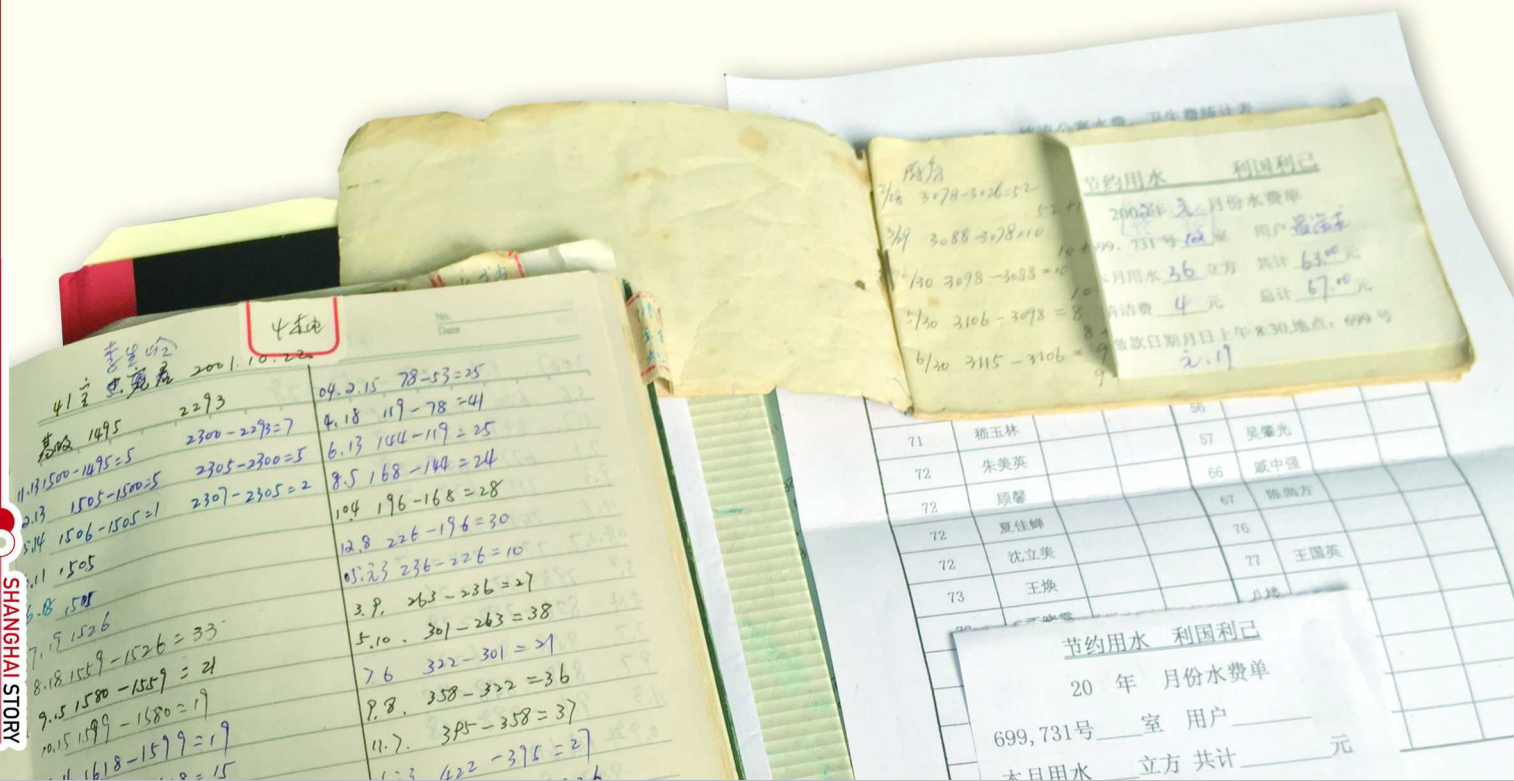 SHANGHAI STORY
4本
No.
Date
41室
2001.10.22
基段 1495
2293
11.13 1500-1495=5
2300-2293=7
1505-1500=5
2305-2300=5
1506-1505=1
2307-2305=2
7.9 1526
8.18 1559-1526=33
9.15 1580-1559=21
10.15 1599-1580=19
1618-1599=19
04.2.15 78-53=25
4.18 119-78=41
6.13 144-119=25
8.5 168-144=24
10.4 196-168=28
12.8 226-196=30
05.元.3 236-226=10
3.9. 263-236=27
5.10. 301-263=38
7.6 322-301=21
9.8. 358-322=36
11.7. 395-358=37
422-395=27
厨房
2/28 3078-3026=52
3/29 3088-3078=10
/30 3098-3088=10
5/30 3106-3098=8
6/30 3115-3106=9
节约用水 利国利己
月份水费单
699.731号 室 用户
本月用水 36 立方 共计 63.00元
清洁费 4 元 总计 67.00元
缴款日期月日上午8:30,地点:699号
元.19
水费、卫生费统计表
56
71 嵇玉林
57 吴肇光
72 朱美英
66 戚中强
72 顾馨
67
72 夏佳蝉
76
72 沈立美
77 王国英
73 王焕
节约用水 利国利己
20 年 月份水费单
699,731号 室 用户
本月用水 立方 共计 元